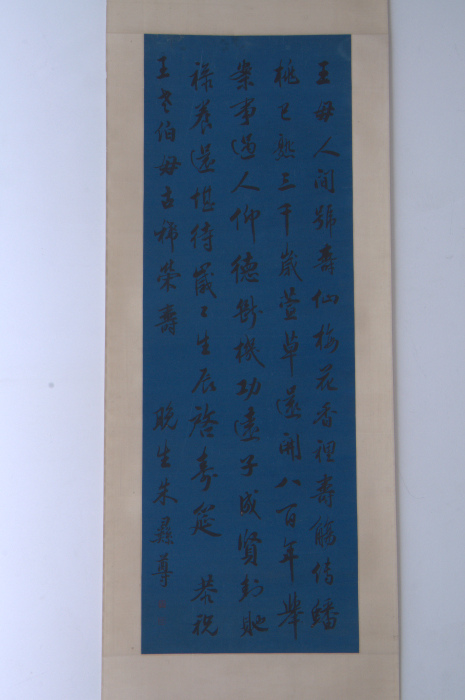 王母人間號壽仙梅花香裡壽觴傳蟠
桃已熟三千歲萱草還開八百年舉
案事過人仰德斷機功遠子成賢封貤
祿養還堪待歲〻生辰啓壽筵 恭祝
王老伯母古稀榮壽 晚生朱彝尊